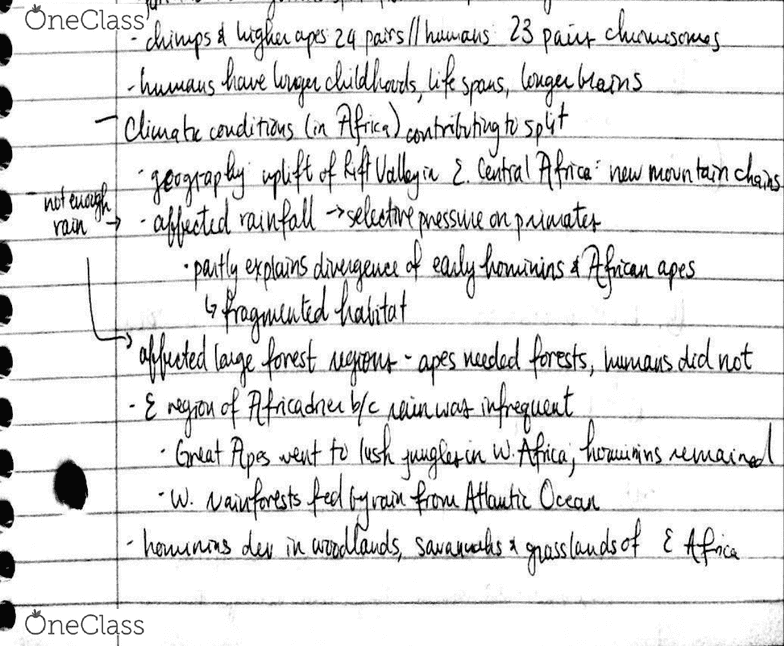 OneClass
- chimps & higher apes 24 pairs // humans 23 pairs chromosomes
- humans have longer childhoods, life spans, longer brains
- Climatic conditions (in Africa) contributing to split
· geography: uplift of Rift Valley in E. Central Africa: new mountain chains
not enough rain →
· affected rainfall → selective pressure on primates
· partly explains divergence of early hominins & African apes
↳ fragmented habitat
affected large forest regions - apes needed forests, humans did not
- E region of Africa drier b/c rain was infrequent
· Great Apes went to lush jungles in W. Africa; hominins remained
· W. rainforests fed by rain from Atlantic Ocean
- hominins dev in woodlands, savannahs & grasslands of E Africa
OneClass